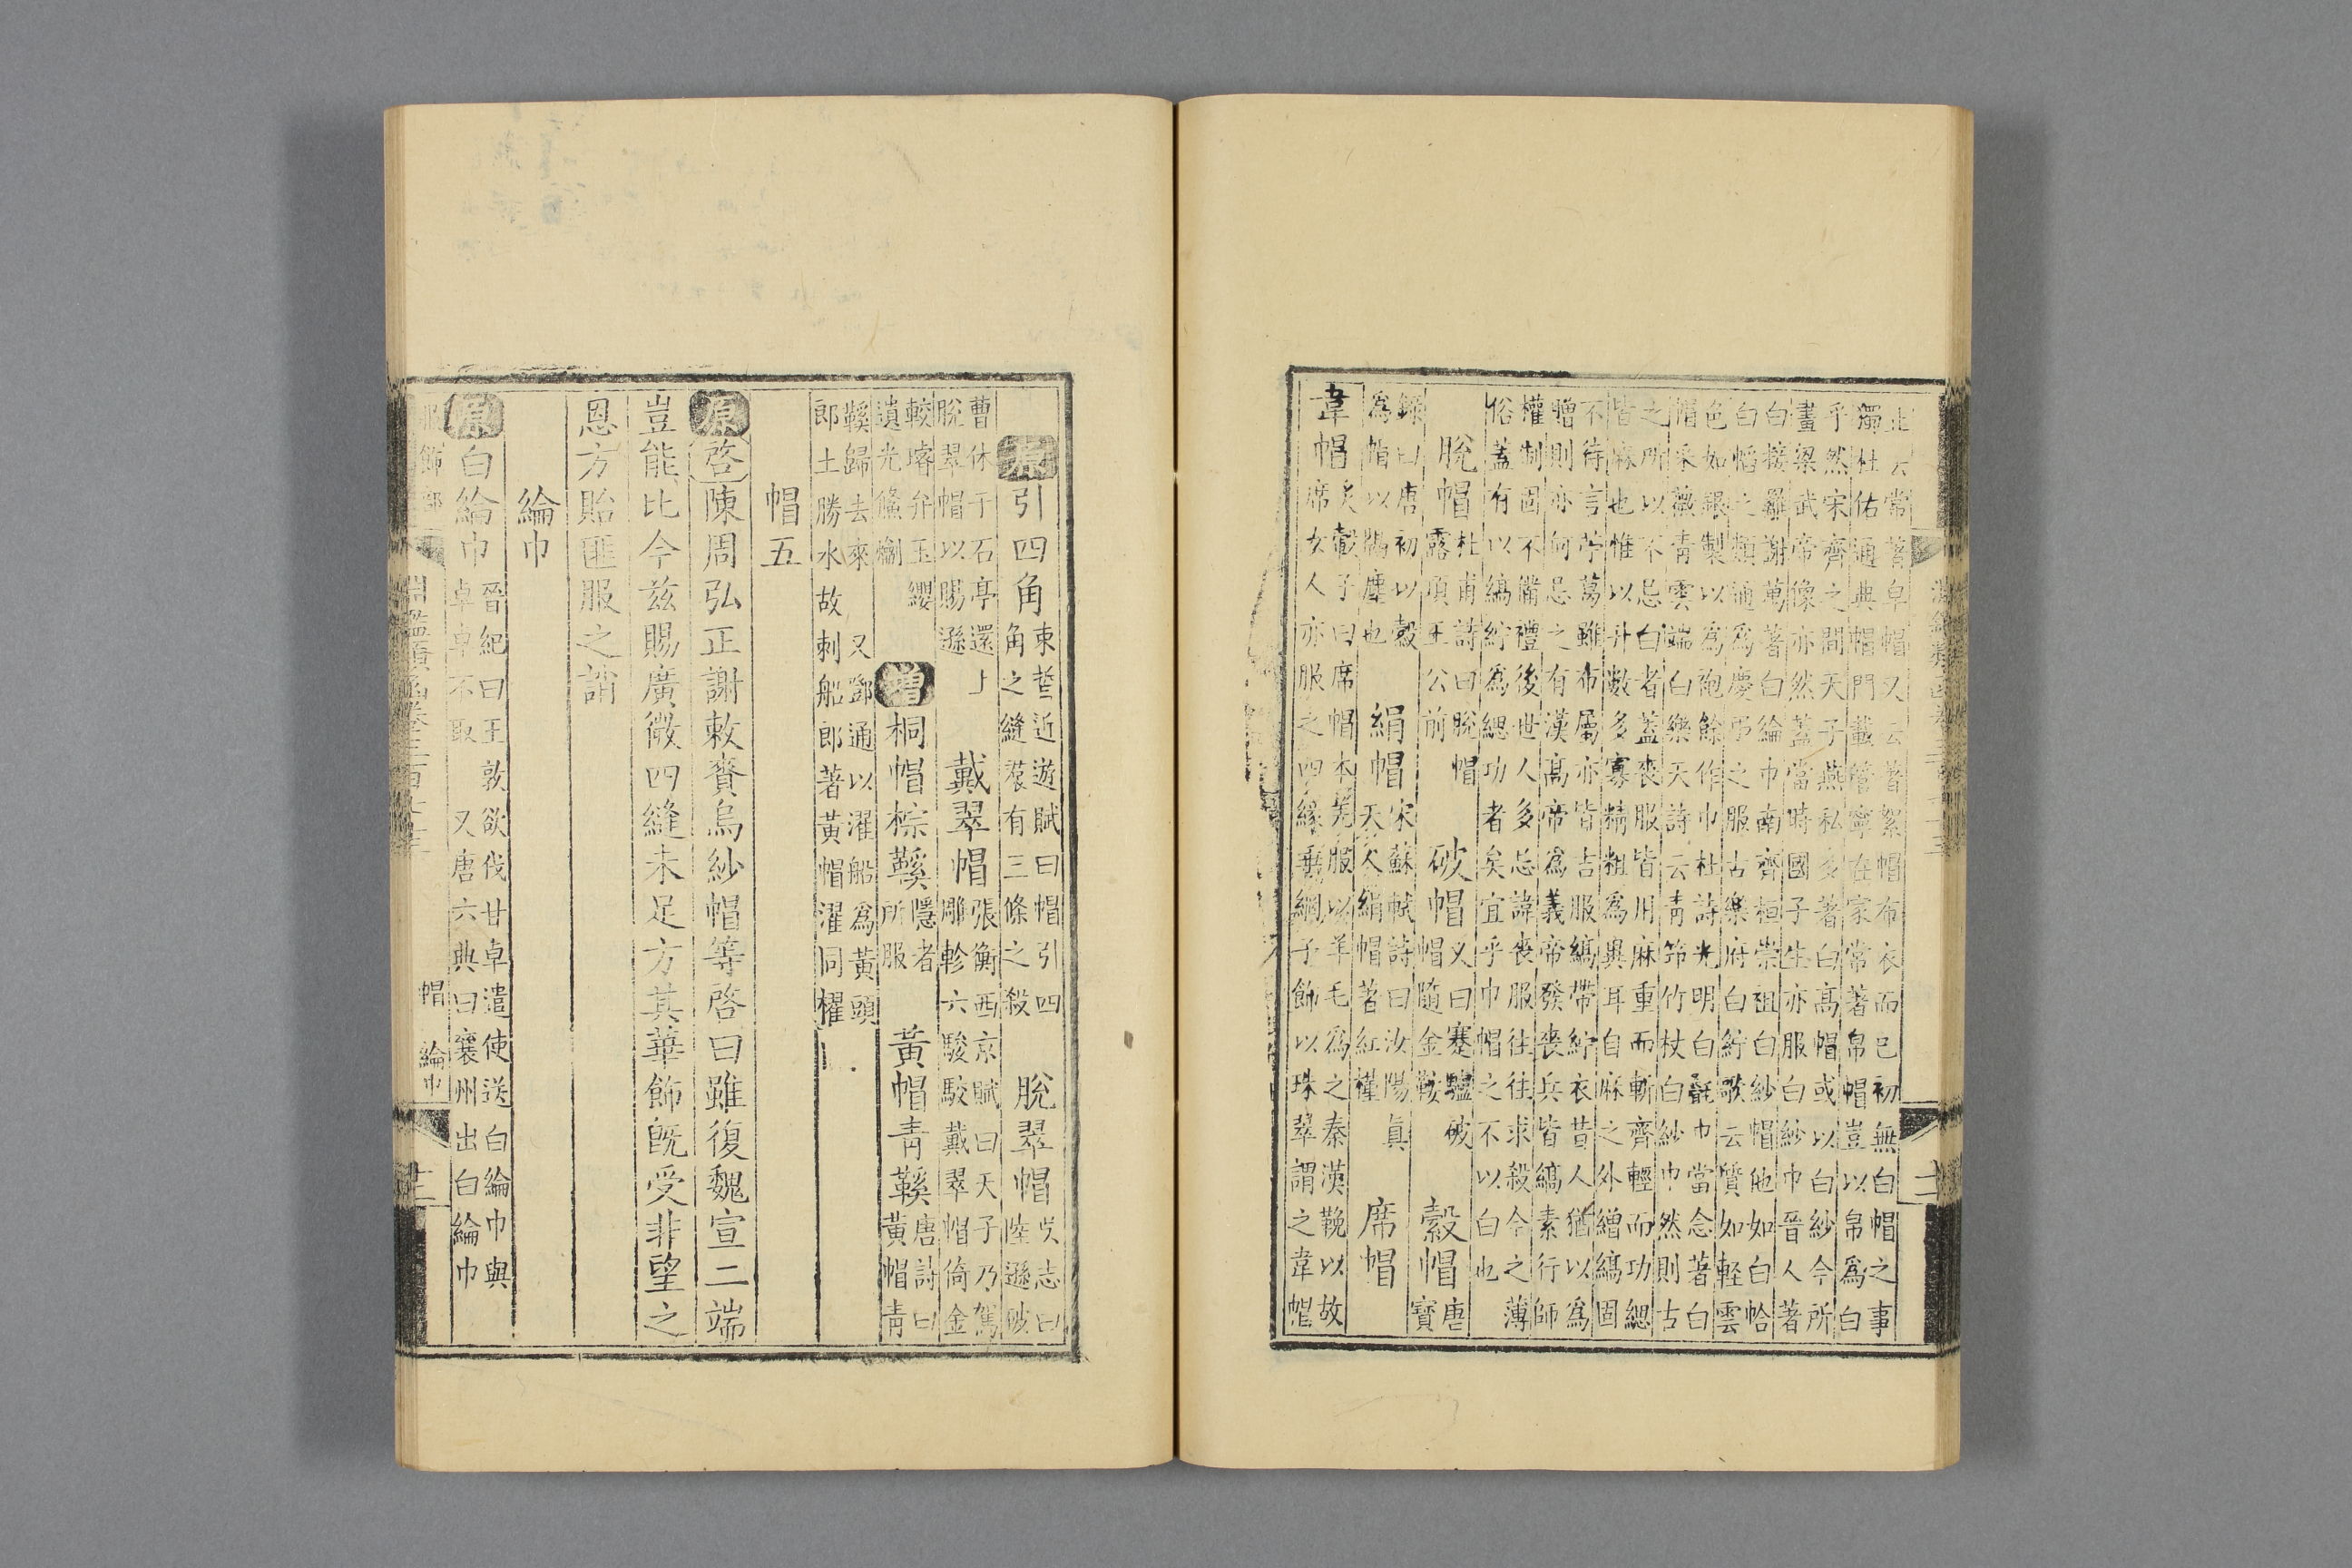 止云常著皁帽又云著絮帽布衣而已初無白帽之事
獨杜佑通典帽門載管寧在家常著帛帽豈以帛爲白
乎然宋齊之間天子燕私多著白高帽或以白紗今所
畫梁武帝像亦然蓋當時國子生亦服白紗巾晉人著
白接䍦謝萬著白綸巾南齊桓崇祖白紗帽他如白帢
白幍之類通爲慶弔之服古樂府白紵歌云質如軽雲
色如銀製以爲袍餘作巾杜詩光明白㲲巾當念著白
帽采薇青雲端白樂天詩云青筇竹杖白紗巾然則古
之所以不忌白者蓋喪服皆用麻重而斬齊輕而功緦
皆麻也惟以升數多寡精粗爲異耳自麻之外繒縞固
不待言苧葛雖布屬亦皆吉服縞帶紵衣昔人猶以爲
贈則亦何忌之有漢高帝爲義帝發喪兵皆縞素行師
權制固不備禮後世人多忌諱喪服往往求殺今之薄
俗蓋有以縞紵爲緦功者矣宜乎巾帽之不以白也
脫帽 杜甫詩曰脫帽露頂王公前 破帽 又曰蹇驢破帽隨金鞍 縠帽 唐寶
錄曰唐初以縠爲帽以隔塵也 絹帽 宋蘇軾詩曰汝陽眞天人絹帽著紅槿 席帽
韋帽 炙轂子曰席帽本羌服以羊毛爲之秦漢鞔以故席女人亦服之四緣垂網子飾以珠翠謂之韋帽
原 引四角 束晳近遊賦曰帽引四角之縫裠有三條之殺 脫翠帽 吳志曰陸遜破
曹休于石亭還上脫翠帽以賜遜 戴翠帽 張衡西京賦曰天子乃駕雕軫六駿駮戴翠帽倚金
較璿弁玉纓遺光儵爚 增 桐帽棕鞵 隱者所服 黃帽青鞵 唐詩曰黃帽青
鞵歸去來 又鄧通以濯船爲黃頭郎土勝水故刺船郎著黃帽濯同櫂
帽五
原 啓 陳周弘正謝敕賚烏紗帽等啓曰雖復魏宣二端
豈能比今兹賜廣微四縫未足方其華飾旣受非望之
恩方貽匪服之誚
綸巾
原 白綸巾 晉紀曰王敦欲伐甘卓遣使送白綸巾與卓卓不取 又唐六典曰襄州出白綸巾
服飾部 淵鑑類函卷三百七十一 帽 綸巾 十二